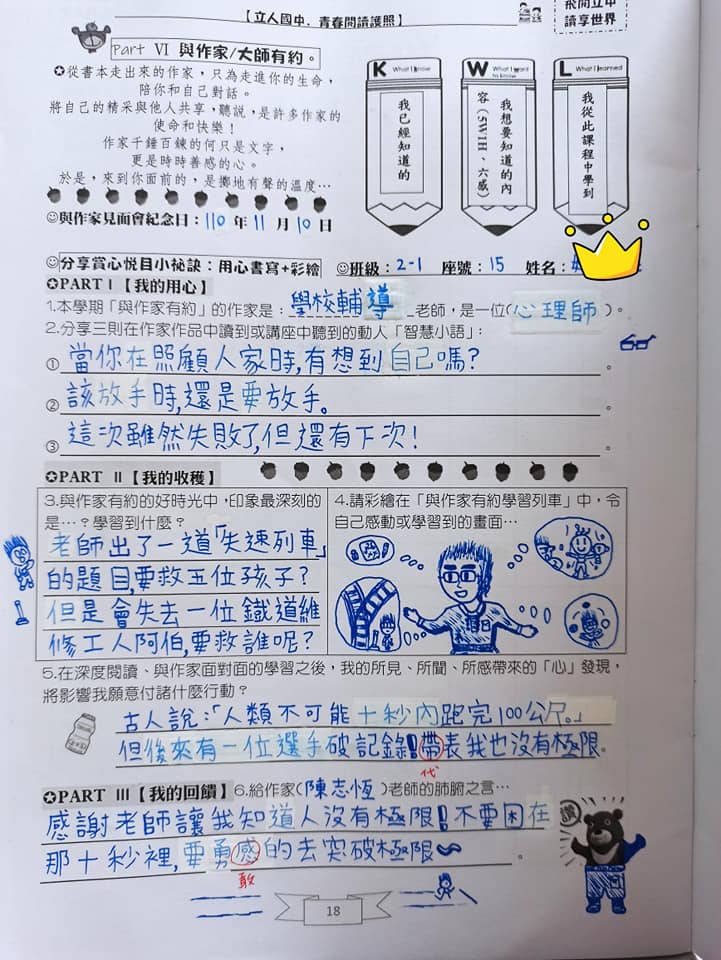 【立人國中．青春閱讀護照】
飛閱立中
讀享世界
Part Ⅵ 與作家/大師有約。
✪從書本走出來的作家，只為走進你的生命，
陪你和自己對話。
將自己的精采與他人共享，聽說，是許多作家的
使命和快樂！
作家千錘百鍊的何只是文字，
更是時時善感的心。
於是，來到你面前的，是擲地有聲的溫度…
K What I know
我已經知道的
W What I want to know
我想要知道的內
容（5W1H、六感）
L What I learned
我從此課程中學到
☺與作家見面會紀念日：110 年 11 月 10 日
☺分享賞心悅目小祕訣：用心書寫+彩繪
☺班級：2-1 座號：15 姓名：
✪PART Ⅰ【我的用心】
1.本學期「與作家有約」的作家是：學校輔導老師，是一位(心理師)。
2.分享三則在作家作品中讀到或講座中聽到的動人「智慧小語」：
① 當你在照顧人家時,有想到自己嗎?。
② 該放手時,還是要放手。。
③ 這次雖然失敗了,但還有下次!。
✪PART Ⅱ【我的收穫】
3.與作家有約的好時光中，印象最深刻的
是…？學習到什麼？
老師出了一道「失速列車」
的題目,要救五位孩子?
但是會失去一位鐵道維
修工人阿伯,要救誰呢?
4.請彩繪在「與作家有約學習列車」中，令
自己感動或學習到的畫面…
5.在深度閱讀、與作家面對面的學習之後，我的所見、所聞、所感帶來的「心」發現，
將影響我願意付諸什麼行動？
古人說:「人類不可能十秒內跑完100公尺。」
但後來有一位選手破記錄!帶表我也沒有極限。
代
✪PART Ⅲ【我的回饋】6.給作家(陳志恆)老師的肺腑之言…
感謝老師讓我知道人沒有極限!不要困在
那十秒裡,要勇感的去突破極限~。
敢
讚
18